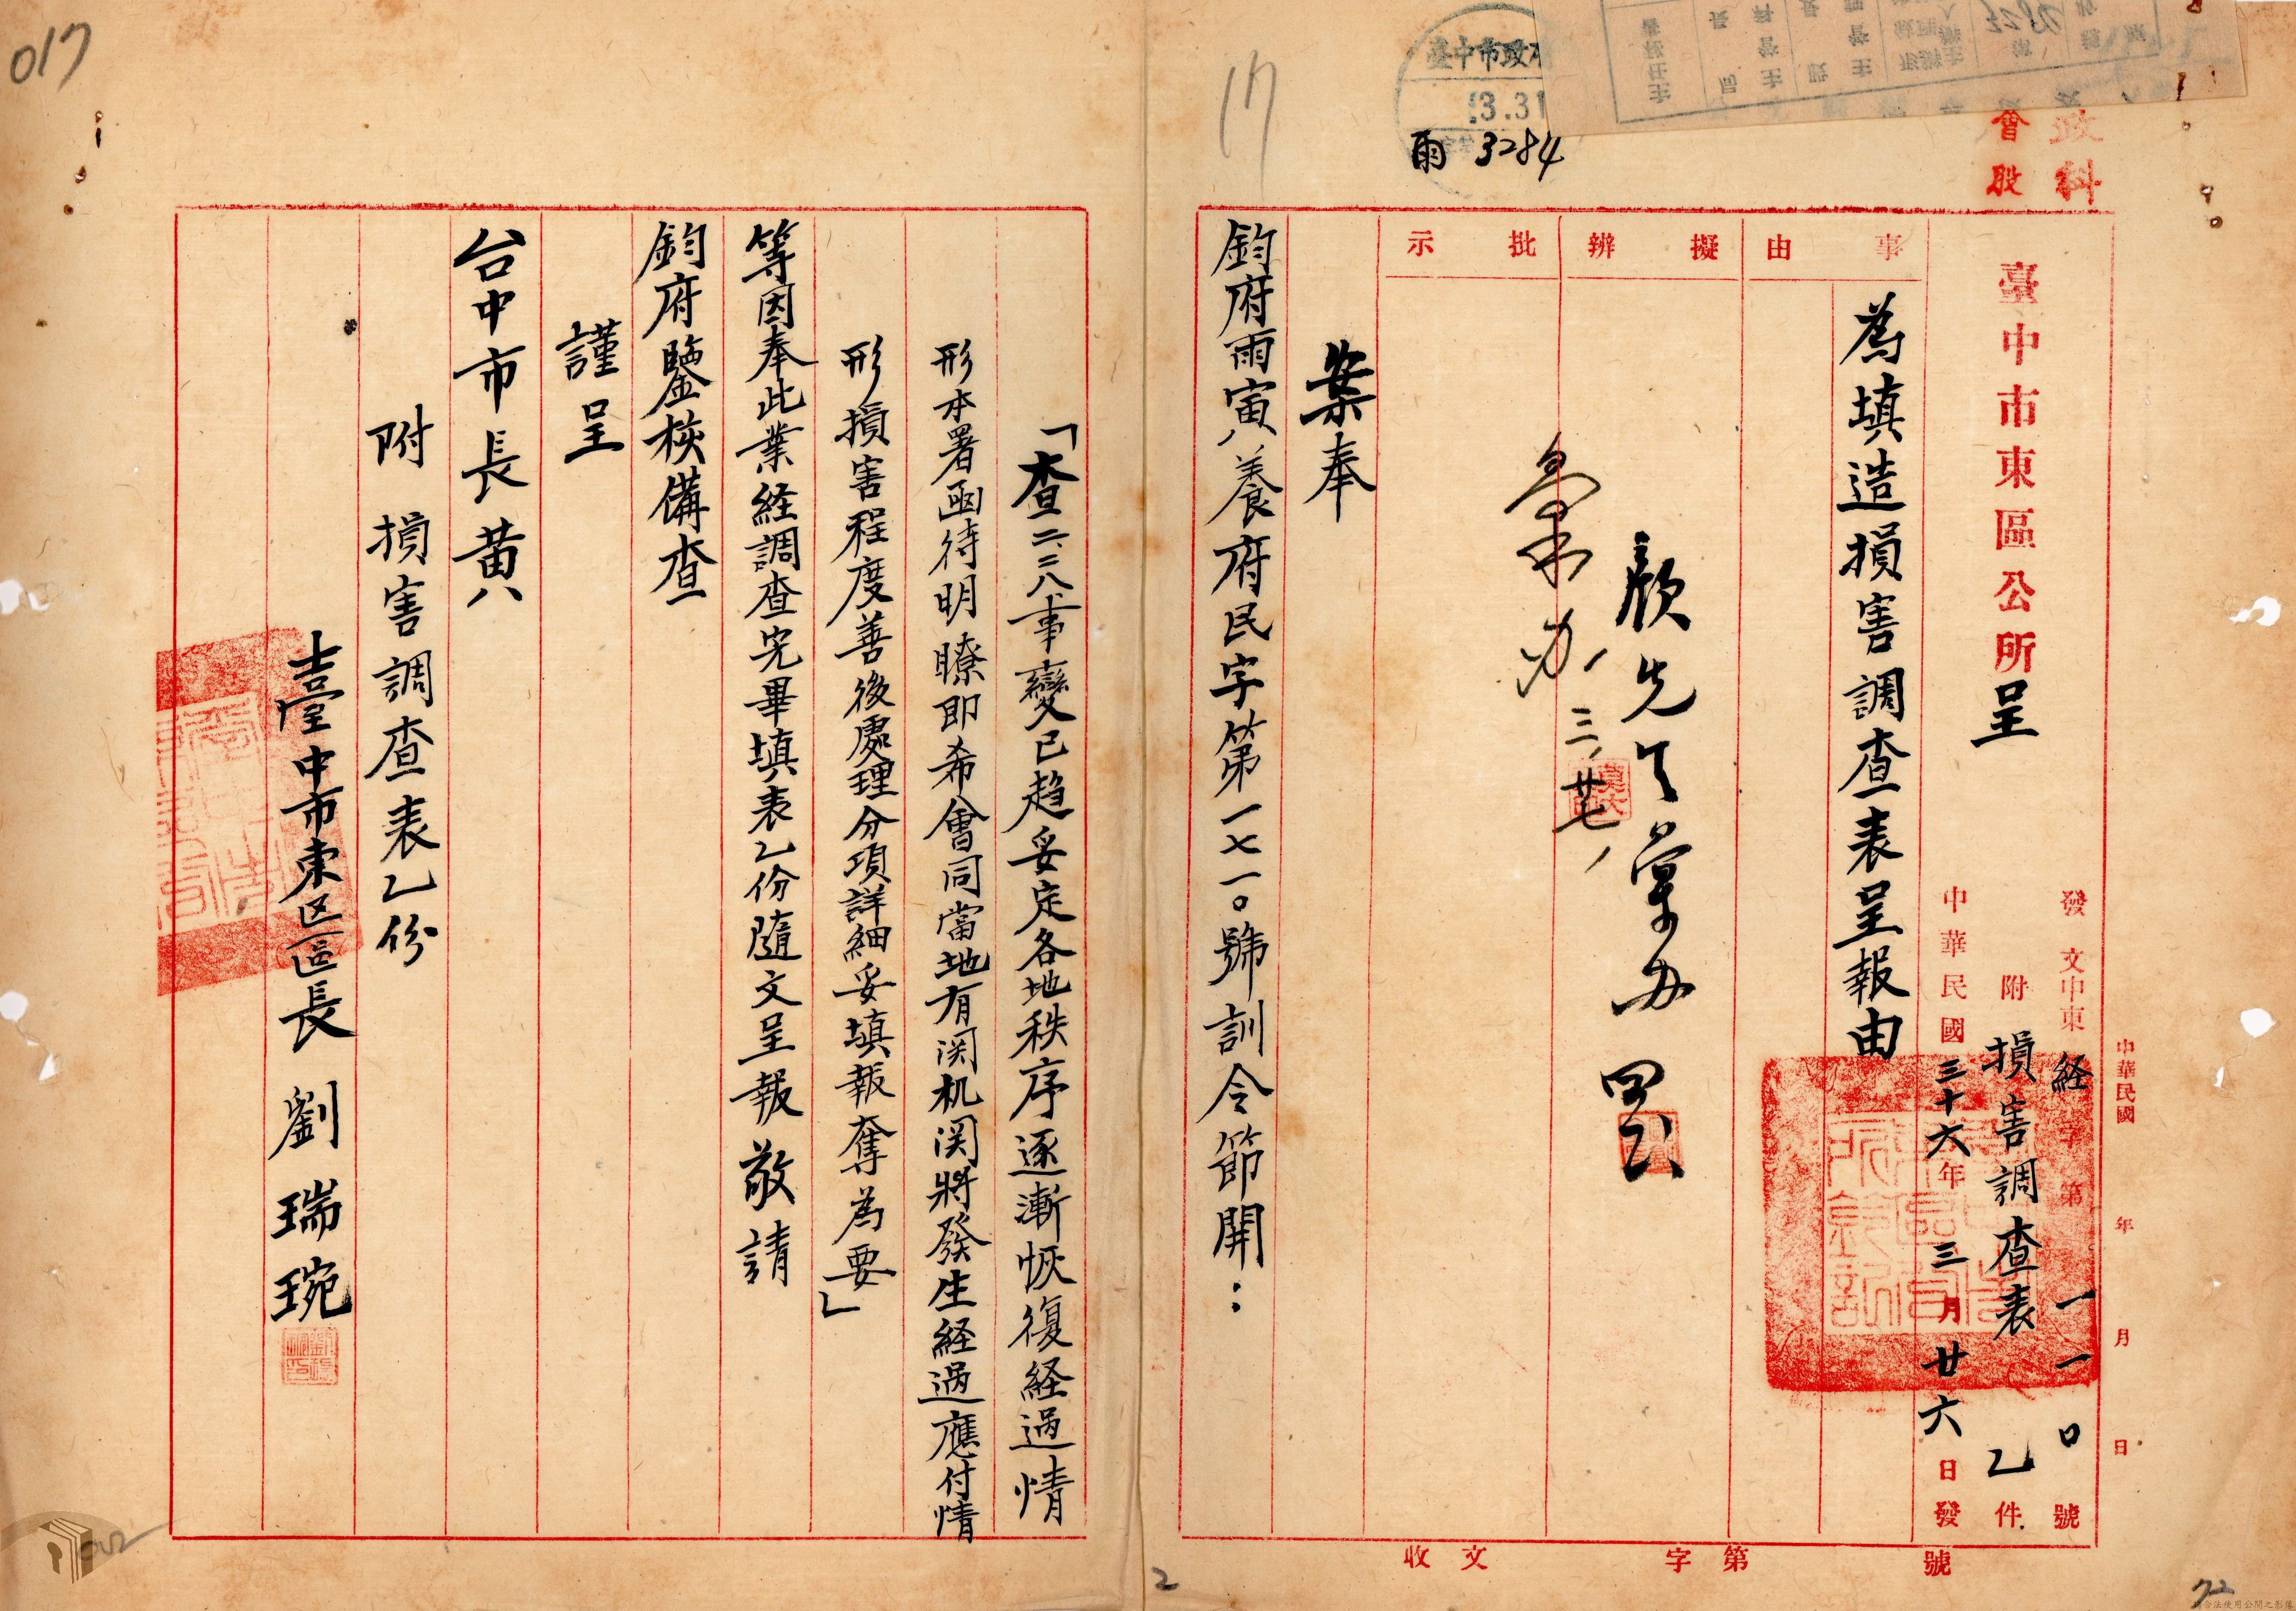 017
17
臺中市政府
3.31
雨 3284
3282
政科
會股
臺中市東區公所呈
發文中東経字第一一〇號
附 損害調查表 乙件
中華民國三十六年三月廿六日發
中華民國 年 月 日
事由
擬辦
批示
為填造損害調查表呈報由
顏先生彙办
彙办
三、廿七、
案奉
鈞府雨寅八養府民字第一七一〇號訓令節開：
「查二、二八事變已趨妥定各地秩序逐漸恢復経過情
形本署函待明瞭即希會同當地有関机関將發生経過應付情
形損害程度善後處理分項詳細妥填報奪為要」
等因奉此業経調查完畢填表乙份隨文呈報敬請
鈞府鑒核備查
謹呈
台中市長黃
附 損害調查表乙份
臺中市東区區長 劉瑞琬
收文 字第 號
2
72